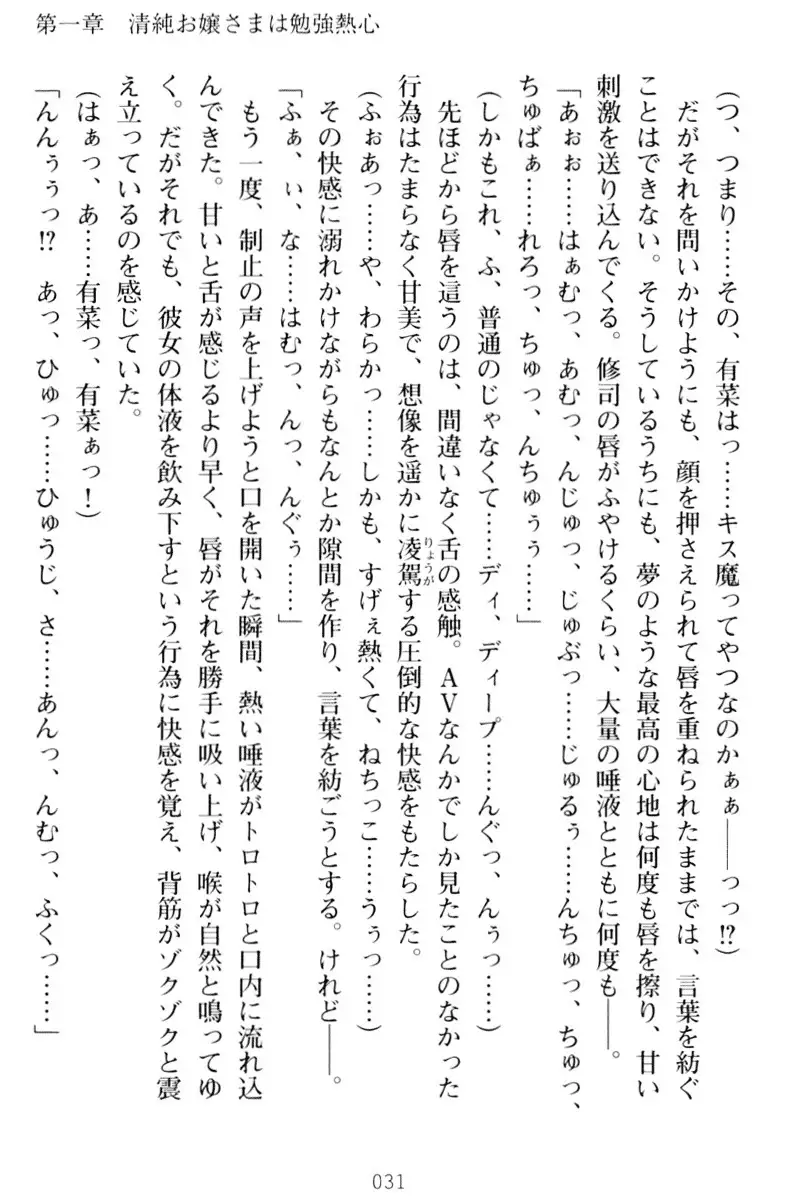 第一章　清純お嬢さまは勉強熱心
(つ、つまり……その、有菜はっ……キス魔ってやつなのかぁぁ――っっ!?)
　だがそれを問いかけようにも、顔を押さえられて唇を重ねられたままでは、言葉を紡ぐ
ことはできない。そうしているうちにも、夢のような最高の心地は何度も唇を擦り、甘い
刺激を送り込んでくる。修司の唇がふやけるくらい、大量の唾液とともに何度も――。
「あぉぉ……はぁむっ、あむっ、んじゅっ、じゅぶっ……じゅるぅ……んちゅっ、ちゅっ、
ちゅばぁ……れろっ、ちゅっ、んちゅぅぅ……」
(しかもこれ、ふ、普通のじゃなくて……ディ、ディープ……んぐっ、んぅっ……)
　先ほどから唇を這うのは、間違いなく舌の感触。ＡＶなんかでしか見たことのなかった
行為はたまらなく甘美で、想像を遥かに凌駕する圧倒的な快感をもたらした。
りょうが
(ふぉあっ……や、わらかっ……しかも、すげぇ熱くて、ねちっこ……うぅっ……)
　その快感に溺れかけながらもなんとか隙間を作り、言葉を紡ごうとする。けれど――。
「ふぁ、ぃ、な……はむっ、んっ、んぐぅ……」
　もう一度、制止の声を上げようと口を開いた瞬間、熱い唾液がトロトロと口内に流れ込
んできた。甘いと舌が感じるより早く、唇がそれを勝手に吸い上げ、喉が自然と鳴ってゆ
く。だがそれでも、彼女の体液を飲み下すという行為に快感を覚え、背筋がゾクゾクと震
え立っているのを感じていた。
(はぁっ、あ……有菜っ、有菜ぁっ！)
「んんぅぅっ!?　あっ、ひゅっ……ひゅうじ、さ……あんっ、んむっ、ふくっ……」
031